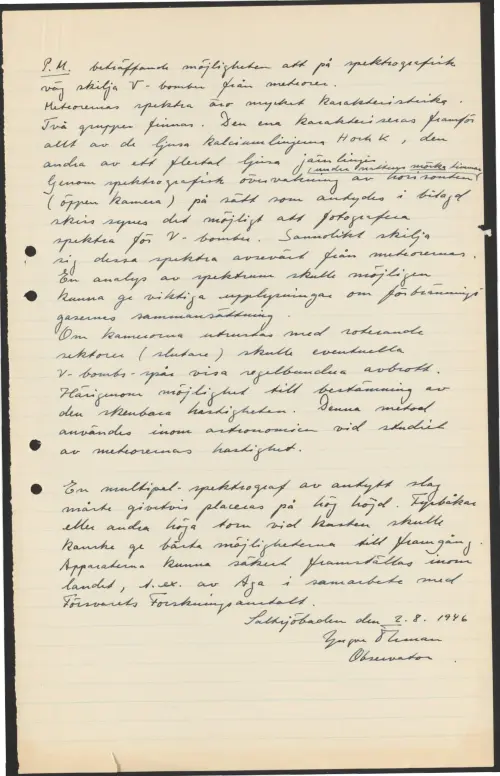 P.M. beträffande möjligheten att på spektrografisk
väg skilja V-bomber från meteorer.
Meteorernas spektra äro mycket karakteristiska.
Två grupper finnas. Den ena karakteriseras framför
allt av de ljusa kalciumlinjerna H och K, den
andra av ett flertal ljusa järnlinjer
(under nattens mörka timmar)
Genom spektrografisk övervakning av horisonten
(öppen kamera) på sätt som antydes i bilagd
skiss synes det möjligt att fotografera
spektra för V-bomber. Sannolikt skilja
sig dessa spektra avsevärt från meteorernas.
En analys av spektrum skulle möjligen
kunna ge viktiga upplysningar om förbrännings
gasernas sammansättning.
Om kamerorna utrustas med roterande
sektorer (slutare) skulle eventuella
V-bombs-spår visa regelbundna avbrott.
Härigenom möjlighet till bestämning av
den skenbara hastigheten. Denna metod
användes inom astronomien vid studiet
av meteorernas hastighet.
En multipel-spektrograf av antytt slag
måste givetvis placeras på hög höjd. Fyrbåkar
eller andra höga torn vid kusten skulle
kanske ge bästa möjligheterna till framgång.
Apparaterna kunna säkert framställas inom
landet, t.ex. av Aga i samarbete med
Försvarets Forskningsanstalt.
Saltsjöbaden den 2.8.1946
Yngve Öhman
Observator.